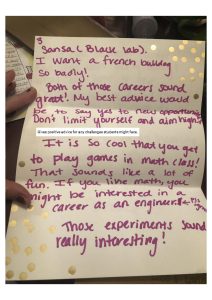 Sansa (Black lab).
I want a french bulldog
so badly!
Both of those careers sound
great! My best advice would
be to say yes to new opportunities
Don't limit yourself and aim high!
Give positive advice for any challenges students might face.
It is so cool that you get
to play games in math class!
That sounds like a lot of
fun. If you like math, you
might be interested in a
career as an engineer!
Those experiments sound
really interesting!